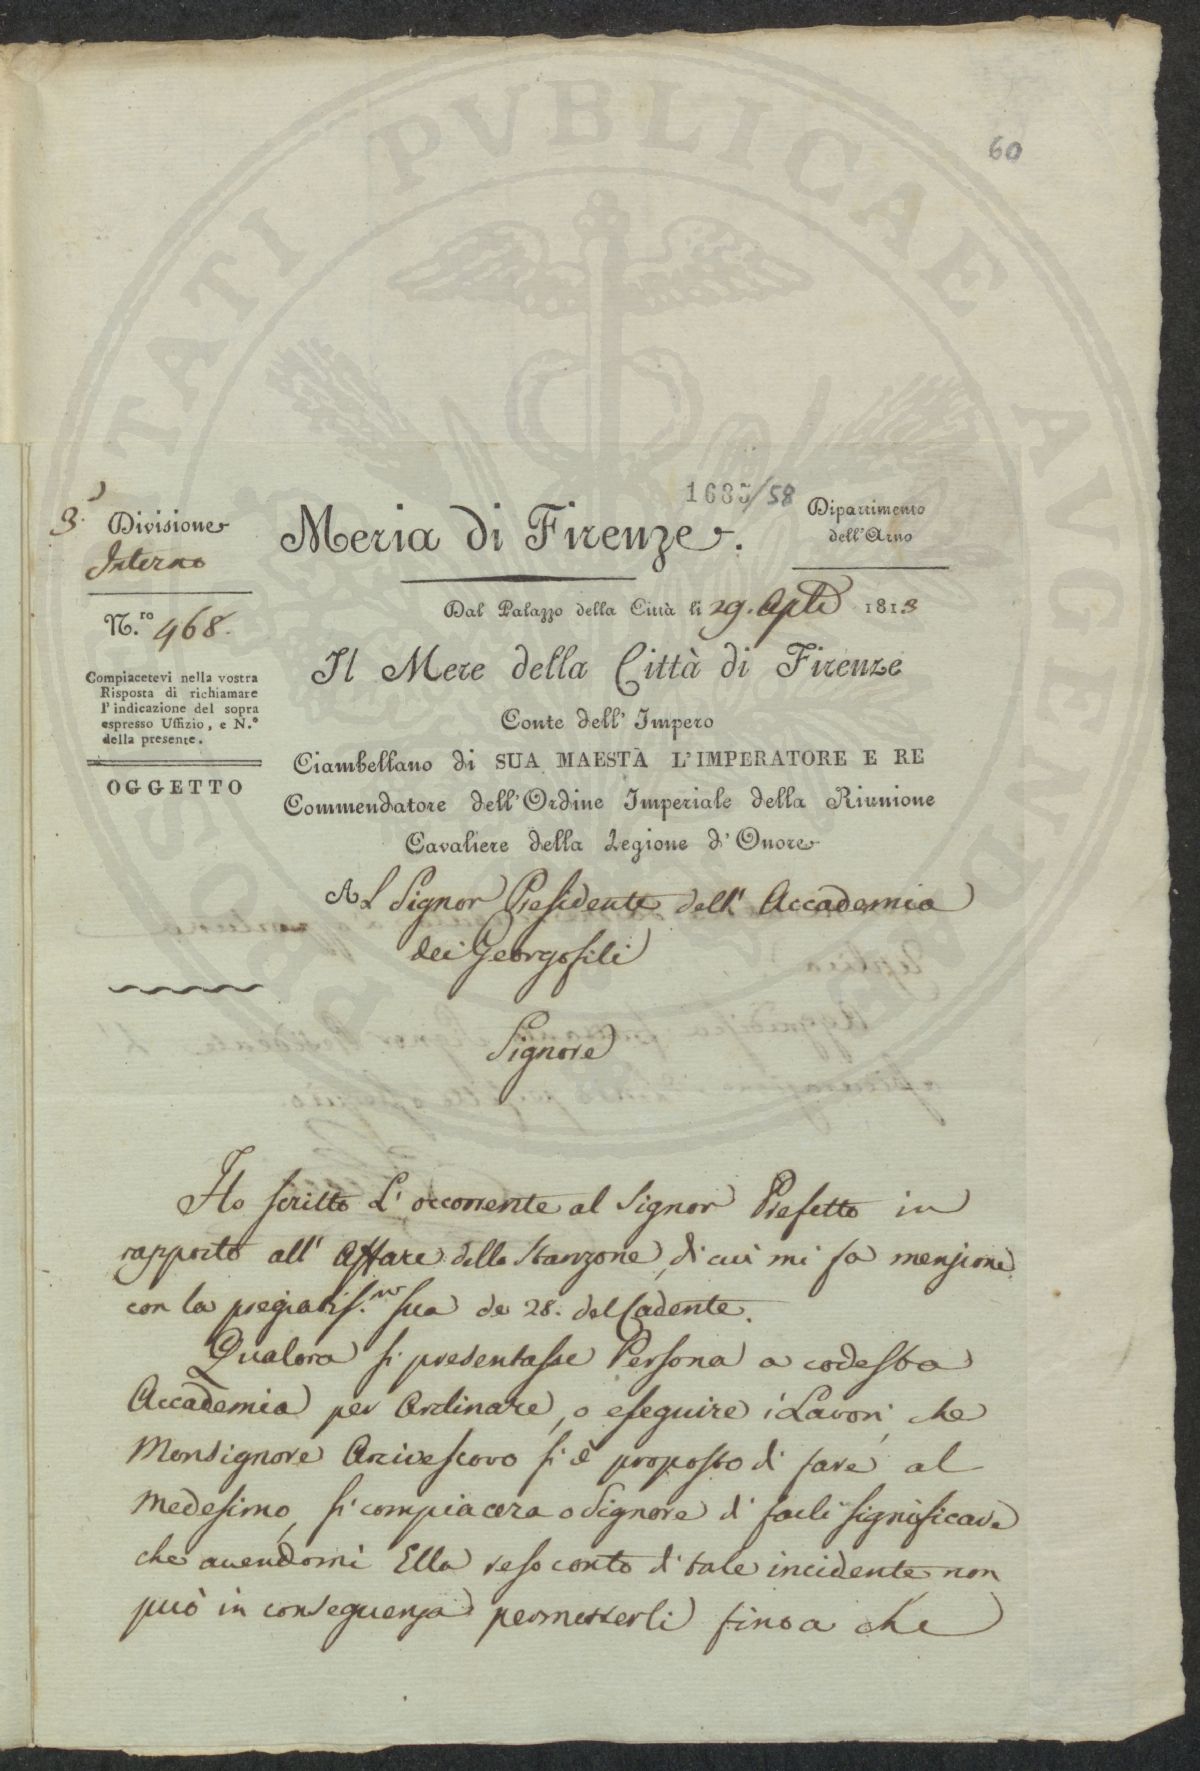 60
1685/58
3.a Divisione
Interno
N.ro 468.
Compiacetevi nella vostra
Risposta di richiamare
l'indicazione del sopra
espresso Uffizio, e N.º
della presente.
OGGETTO
Meria di Firenze.
Dipartimento
dell'Arno
Dal Palazzo della Città li 29. Aple 1813
Il Mere della Città di Firenze
Conte dell' Impero
Ciambellano di SUA MAESTÀ L'IMPERATORE E RE
Commendatore dell'Ordine Imperiale della Riunione
Cavaliere della Legione d'Onore
Al Signor Presidente dell' Accademia
dei Georgofili
Signore
Ho scritto L' occorrente al Signor Prefetto in
rapporto all' Affare dello Stanzone, di cui mi fa menzione
con la pregiatis.ma sua de 28. del Cadente.
Qualora si presentasse Persona a codesta
Accademia per Ordinare, o eseguire i Lavori, che
Monsignore Arcivescovo si è proposto di fare al
Medesimo, si compiacerà o Signore di farli significare
che avendomi Ella reso conto di tale incidente non
può in conseguenza permetterli fino a che
PVBLICAE